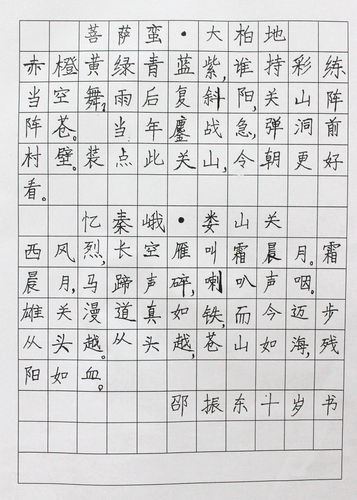 菩萨蛮·大柏地
赤橙黄绿青蓝紫,谁持彩练
当空舞,雨后复斜阳,关山阵
阵苍。当年鏖战急,弹洞前
村壁。装点此关山,今朝更好
看。
忆秦峨·娄山关
西风烈,长空雁叫霜晨月。霜
晨月,马蹄声碎,喇叭声咽。
雄关漫道真如铁,而今迈步
从头越。从头越,苍山如海,残
阳如血。
邵振东十岁书